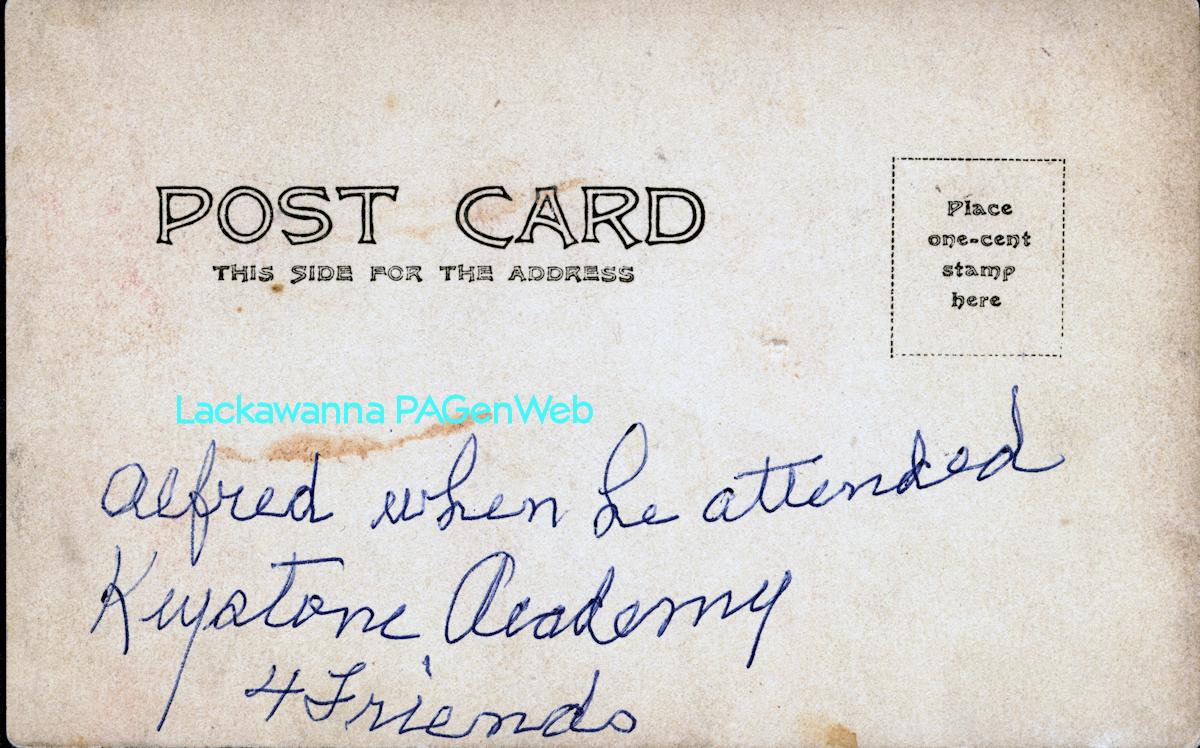 POST CARD
THIS SIDE FOR THE ADDRESS
Place
one-cent
stamp
here
Lackawanna PAGenWeb
Alfred when he attended
Keystone Academy
4 Friends